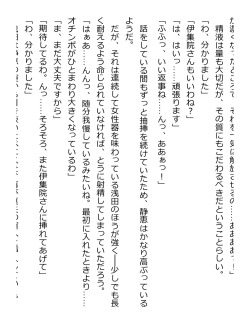 精液は量も大切だが、その質にもこだわるべきだということらしい。
「わ、分かりました」
「伊集院さんもいいわね？」
「は、はいっ……頑張ります」
「ふふっ、いい返事ね……んっ、ああぁっ……」
話をしている間もずっと抽挿を続けていたため、静恵はかなり高ぶっている
ようだ。
だが、それは連続して女性器を味わっている浅田のほうが強く――少しでも長
く耐えるよう命じられていなければ、とうに射精してしまっていただろう。
「はぁあ……んんっ、随分我慢しているみたいね。最初に入れたときより……
オチンポがひとまわり大きくなっているわ」
「ま、まだ大丈夫ですから」
「期待してるわ、んっ……そろそろ、また伊集院さんに挿れてあげて」
「わ、分かりました」